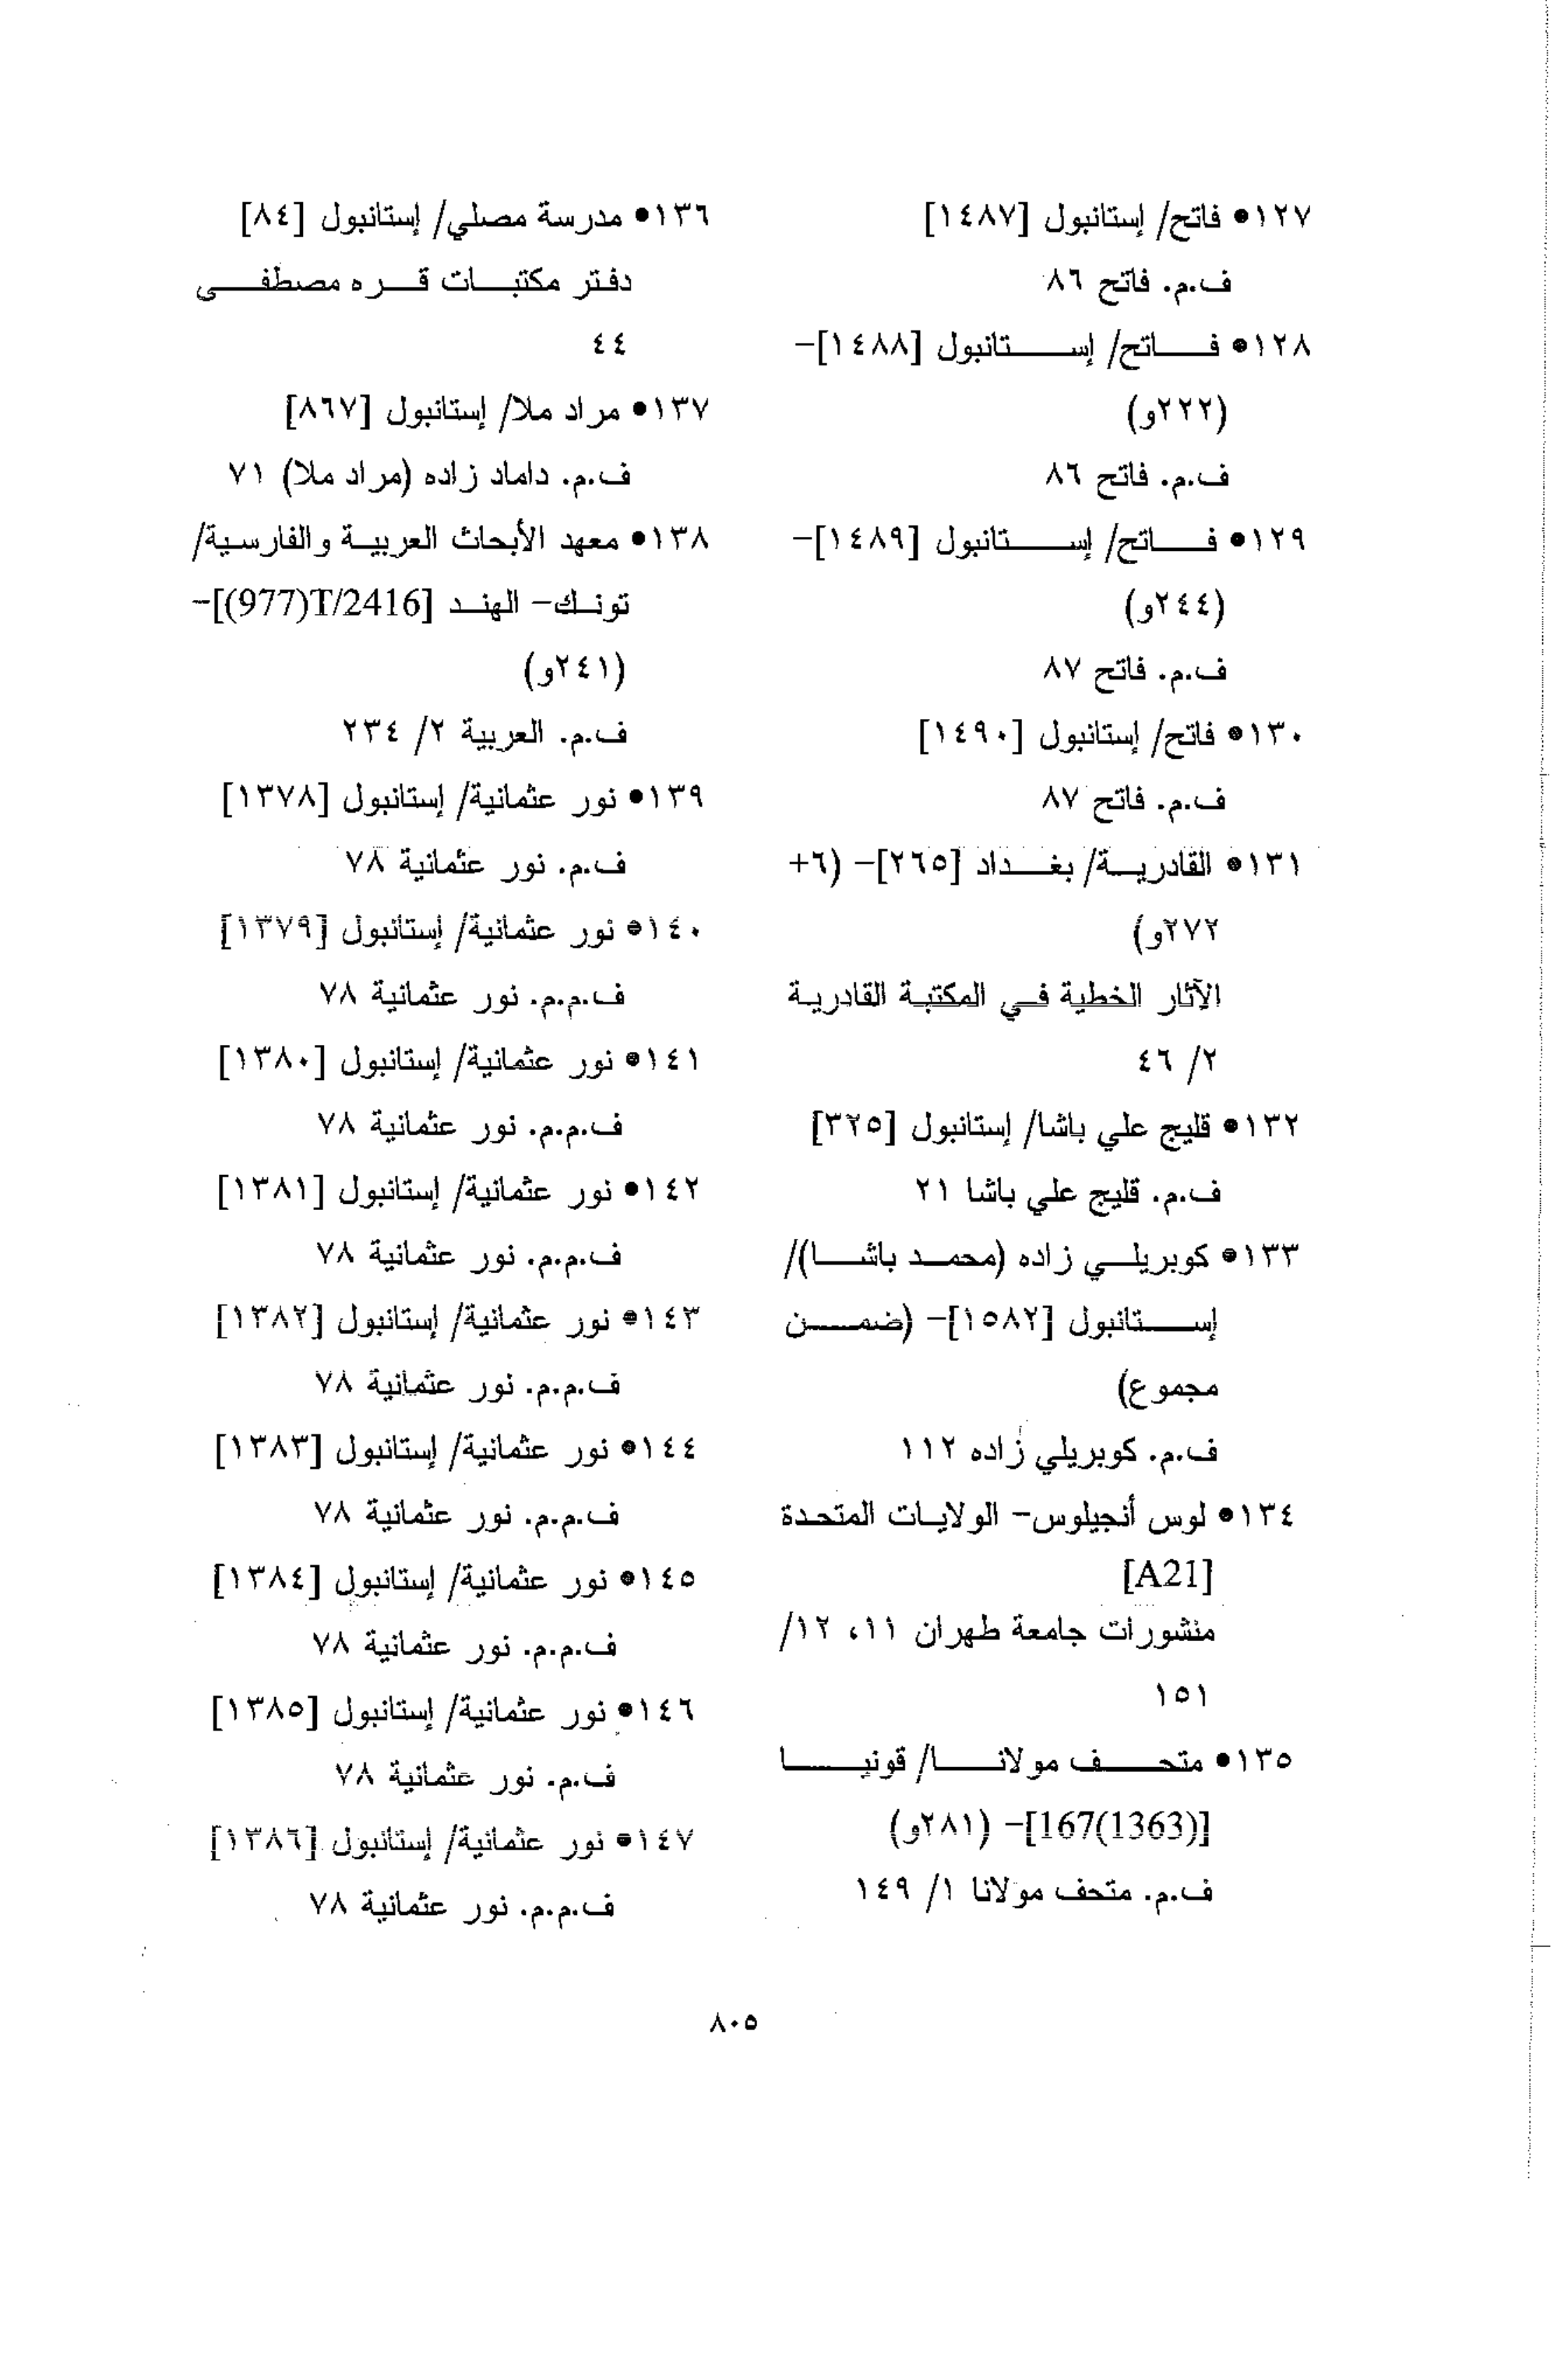 ١٢٧• فاتح/ إستانبول [١٤٨٧]
ف.م. فاتح ٨٦
١٢٨• فاتح/ إستانبول [١٤٨٨]-
(٢٢٢و)
ف.م. فاتح ٨٦
١٢٩• فاتح/ إستانبول [١٤٨٩]-
(٢٤٤و)
ف.م. فاتح ٨٧
١٣٠• فاتح/ إستانبول [١٤٩٠]
ف.م. فاتح ٨٧
١٣١• القادرية/ بغداد [٢٦٥]- (٦+
٢٧٢و)
الآثار الخطية في المكتبة القادرية
٢/ ٤٦
١٣٢• قليج علي باشا/ إستانبول [٣٢٥]
ف.م. قليج علي باشا ٢١
١٣٣• كوبريلي زاده (محمد باشا)/
إستانبول [١٥٨٢]- (ضمن
مجموع)
ف.م. كوبريلي زاده ١١٢
١٣٤• لوس أنجيلوس- الولايات المتحدة
[A21]
منشورات جامعة طهران ١١، ١٢/
١٥١
١٣٥• متحف مولانا/ قونيا
[167(1363)]- (٢٨١و)
ف.م. متحف مولانا ١/ ١٤٩
١٣٦• مدرسة مصلي/ إستانبول [٨٤]
دفتر مكتبات قره مصطفى
٤٤
١٣٧• مراد ملا/ إستانبول [٨٦٧]
ف.م. داماد زاده (مراد ملا) ٧١
١٣٨• معهد الأبحاث العربية والفارسية/
تونك- الهند [T/2416(977)]-
(٢٤١و)
ف.م. العربية ٢/ ٢٣٤
١٣٩• نور عثمانية/ إستانبول [١٣٧٨]
ف.م. نور عثمانية ٧٨
١٤٠• نور عثمانية/ إستانبول [١٣٧٩]
ف.م.م. نور عثمانية ٧٨
١٤١• نور عثمانية/ إستانبول [١٣٨٠]
ف.م.م. نور عثمانية ٧٨
١٤٢• نور عثمانية/ إستانبول [١٣٨١]
ف.م.م. نور عثمانية ٧٨
١٤٣• نور عثمانية/ إستانبول [١٣٨٢]
ف.م.م. نور عثمانية ٧٨
١٤٤• نور عثمانية/ إستانبول [١٣٨٣]
ف.م.م. نور عثمانية ٧٨
١٤٥• نور عثمانية/ إستانبول [١٣٨٤]
ف.م.م. نور عثمانية ٧٨
١٤٦• نور عثمانية/ إستانبول [١٣٨٥]
ف.م. نور عثمانية ٧٨
١٤٧• نور عثمانية/ إستانبول [١٣٨٦]
ف.م.م. نور عثمانية ٧٨
٨٠٥